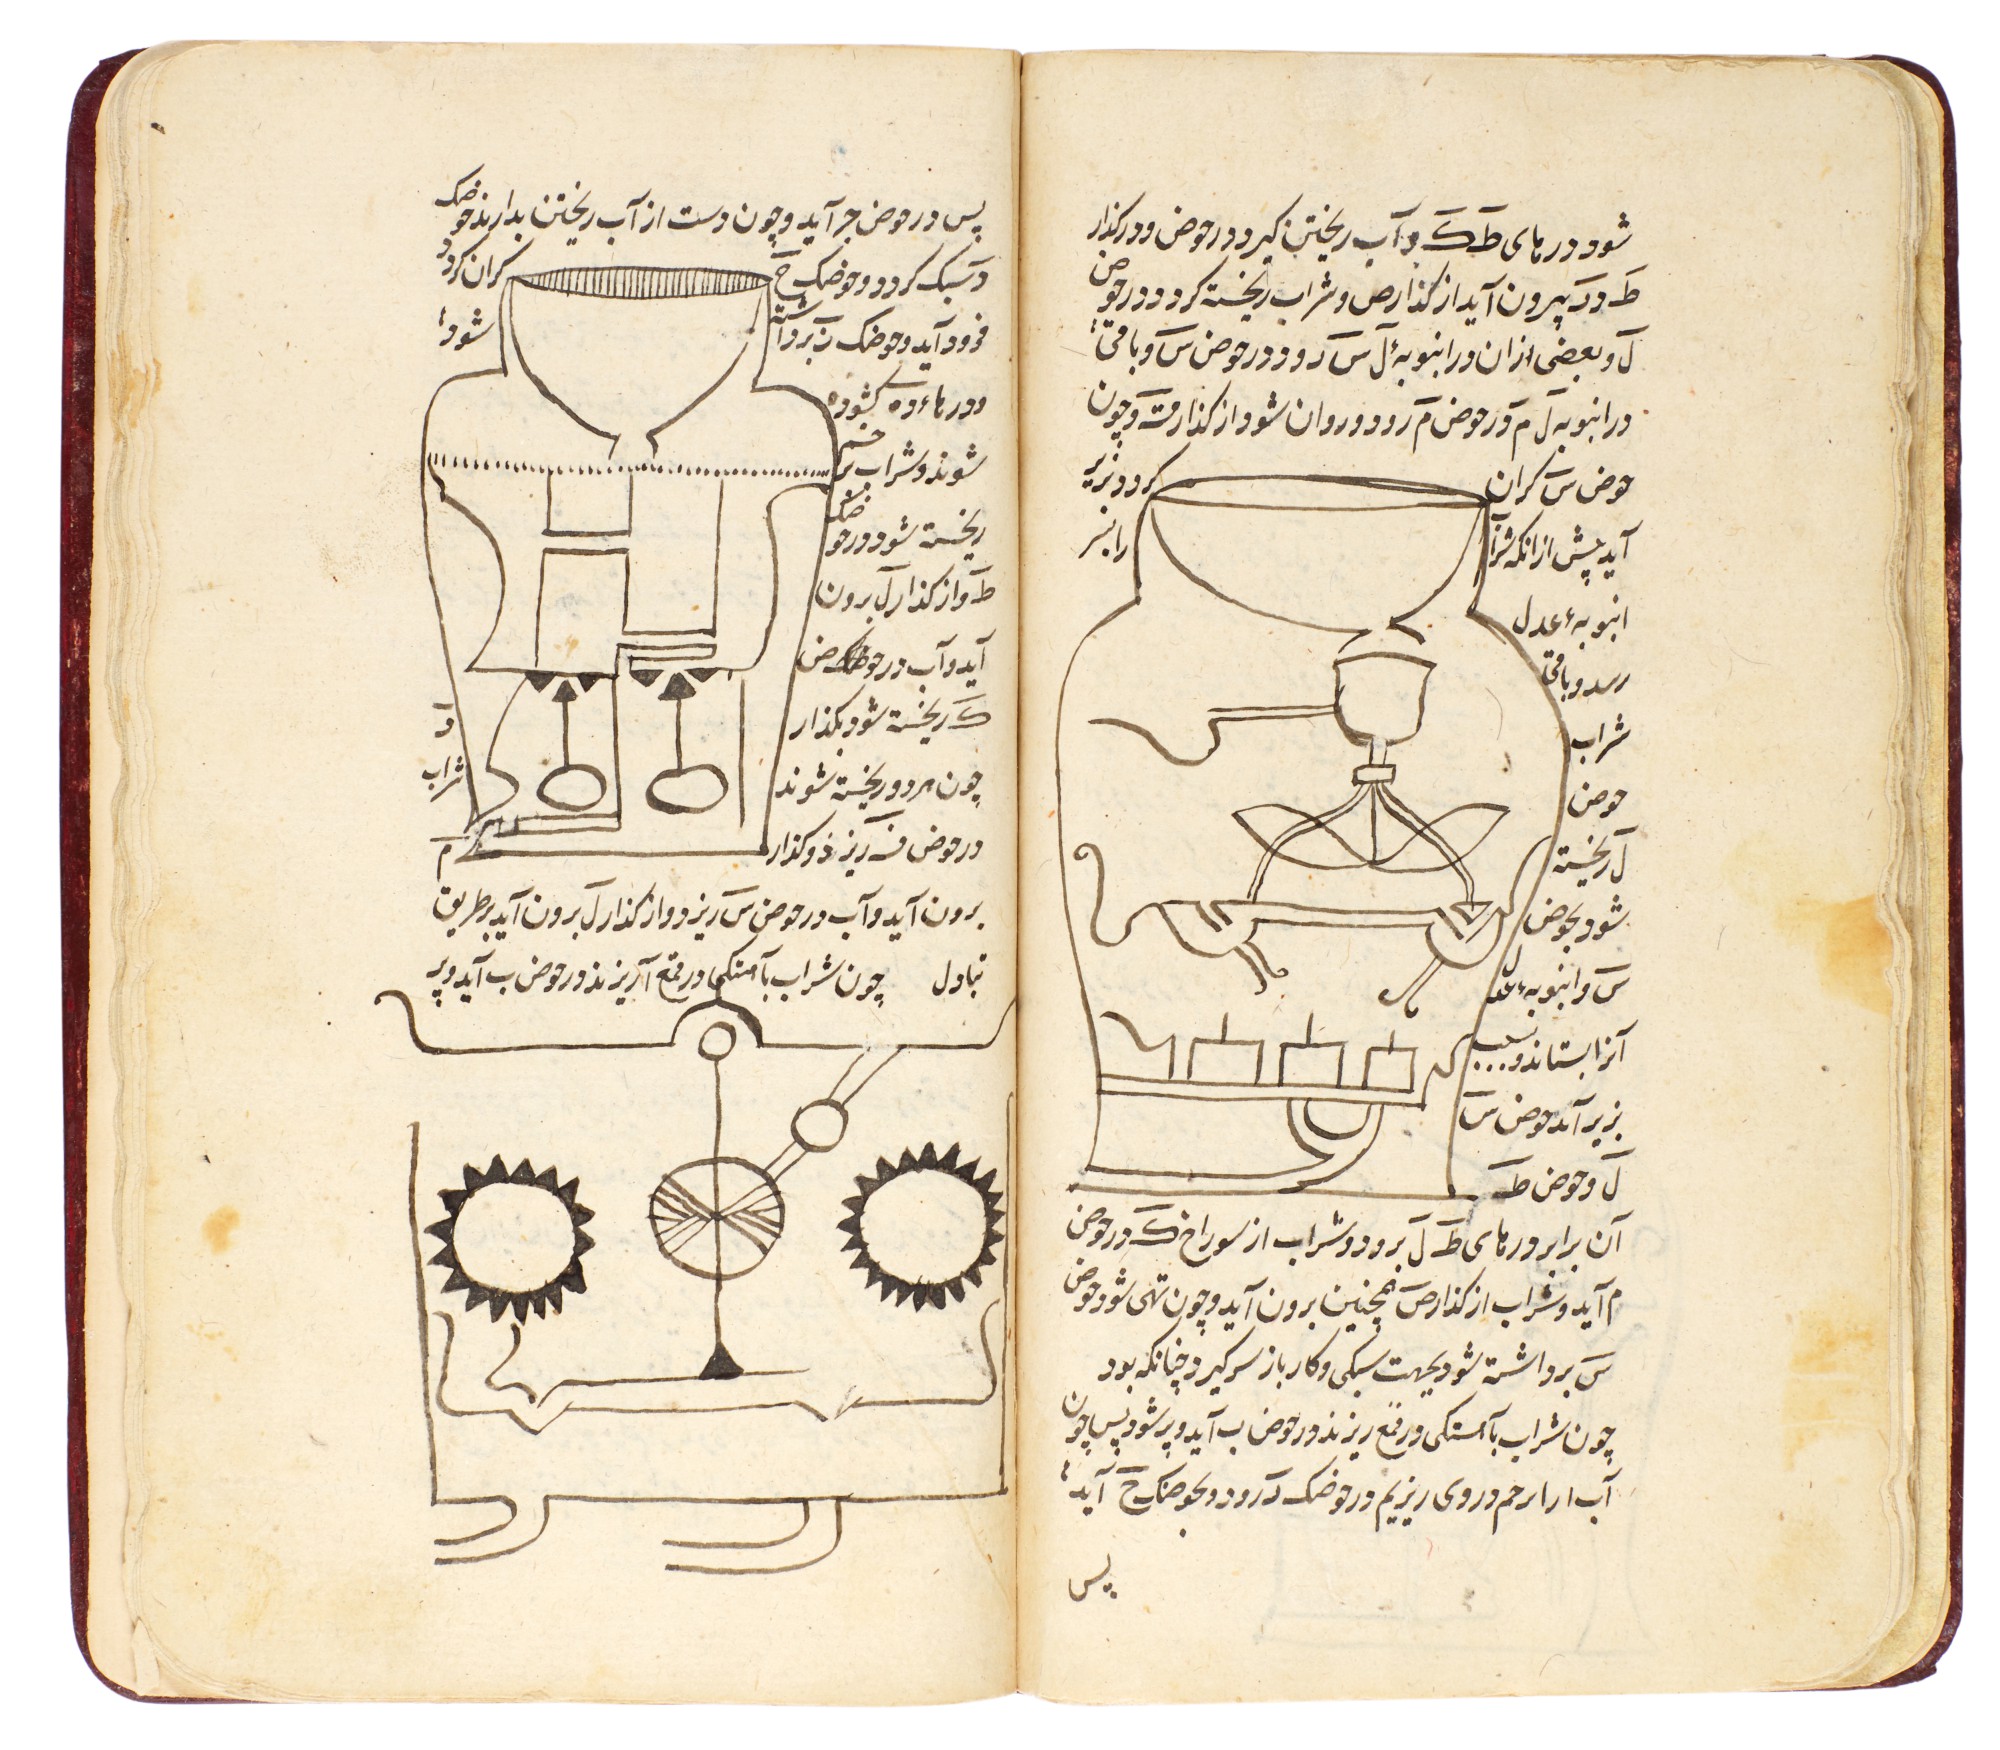 شود در های ط ک و آب ریختن گیرد در حوض و در گذار
ط و د بیرون آید از گذار ص و شراب ریخته گردد در حوض
ل و بعضی ازان در انبوبهٔ ل س رود در حوض س و باقی
در انبوبه ل م در حوض م رود و روان شود از گذار و چون
حوض س گران گردد بزیر
آید پیش ازانکه را نیز
انبوبهٔ عدل
رسد و باقی
شراب
حوض
ل ریخته
شود بحوض
س و انبوبهٔ عدل
آنرا بستاند و
بزیر آمد حوض س
ل و حوض ط
آن برابر در های ط ل برود و شراب از سوراخ ک در حوض
م آید و شراب از گذار ص همچنین برون آید و چون تهی شود حوض
س برداشته شود بجهت سبکی و کار باز سر گیرد چنانکه بود
چون شراب بآهستگی در قمع ریزند در حوض ب آید و پر شود پس چون
آب را در وی ریزیم در حوضک د رود و بحوضک ح آید
پس
پس در حوض آید و چون دست از آب ریختن بدارند حوضک
د سبک گردد و حوضک ح گران گردد
فرود آید و حوضک ز برداشته شود
و در هاء ده گشوده
شوند و شراب
ریخته شود در حوضک
ط و از گذار ل برون
آید و آب در حوض
ک ریخته شود بگذار و
چون هر دو ریخته شوند شراب
در حوض ف ریزد و گذار م
برون آید و آب در حوض س ریزد و از گذار ل برون آید بر طریق
تبادل چون شراب بآهستگی در قمع آ ریزند در حوض ب آید و پر